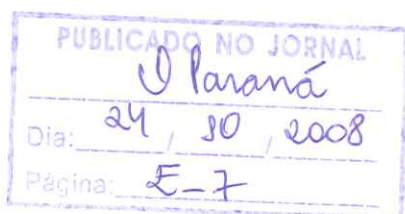 PUBLICADO NO JORNAL
O Paraná
Dia: 24 / 10 / 2008
Página: E-7